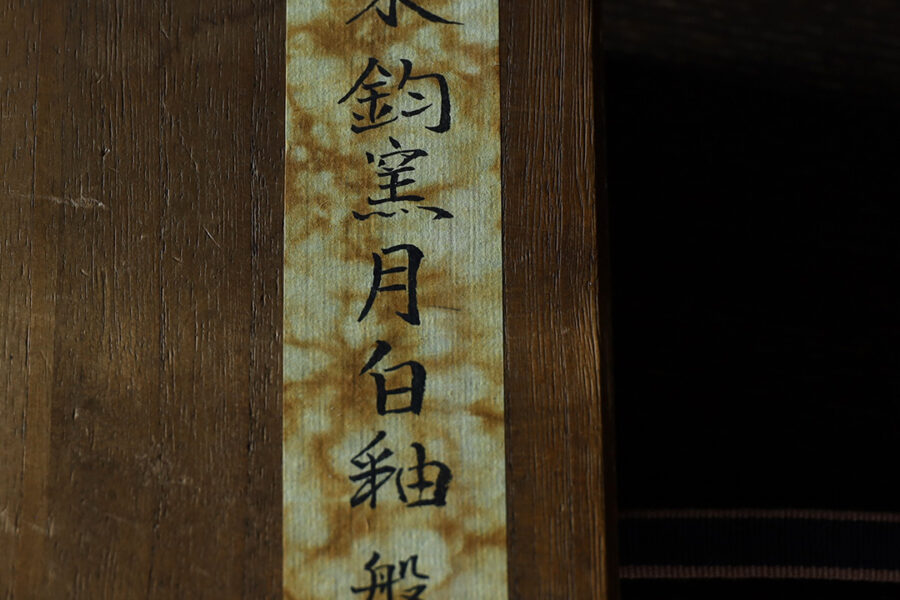 鈞窯月白釉